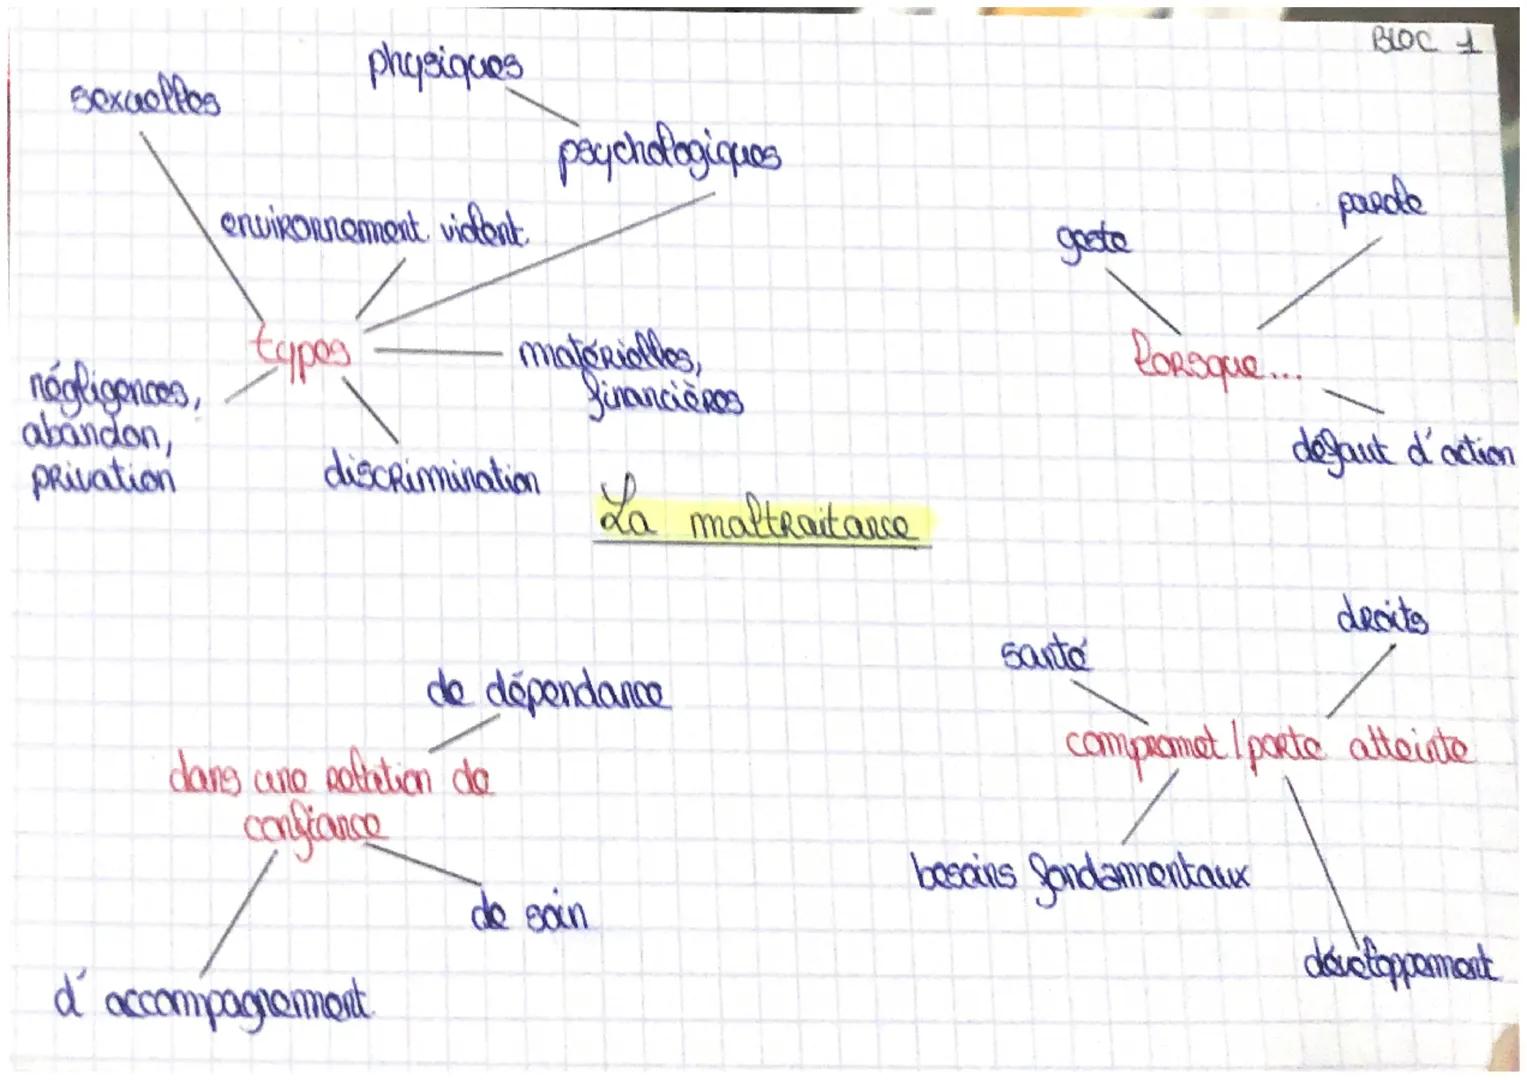 BLOC 1
sexuelles
physiques
psychologiques
environnement violent.
types
négligences,
abandon,
privation
matérielles,
financières
discrimination
geste
parole
lorsque...
défaut d'action
La maltraitance
de dépendance
dans une relation de
confiance
de soin
d'accompagnement
santé
droits
compromet / porte atteinte
besoins fondamentaux
développement